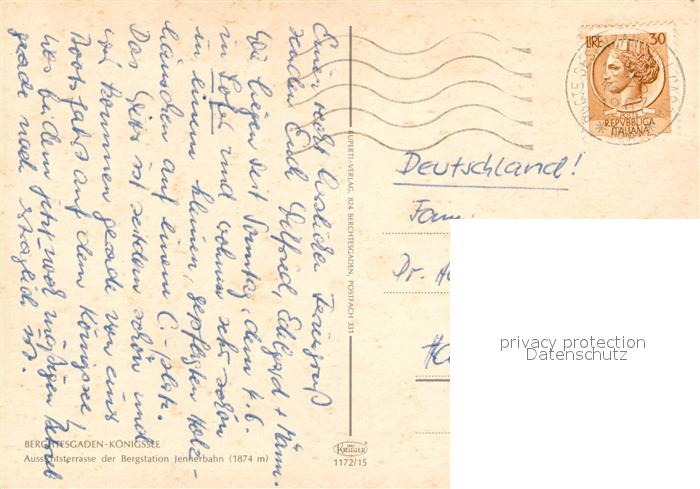 Einen recht herzlichen Feriengruß
senden Euch Wilfried, Edelgard + Männ.
Wir liegen seit Sonntag, dem 7.6.
in und wohnen sehr schön
in einem kleinen, gepflegten Holz-
häuschen auf einem C.-platz.
Das Wetter ist seitdem schön und
wir kommen gerade von einer
Bootsfahrt auf dem Königssee
was bei dem jetzt mäßigen
gerade noch möglich ist.
BERCHTESGADEN-KÖNIGSSEE
Aussichtsterrasse der Bergstation Jennerbahn (1874 m)
RUPERTI-VERLAG, 824 BERCHTESGADEN, POSTFACH 331
KRÜGER
1172/15
LIRE 30
POSTE
REPVBBLICA
ITALIANA
Deutschland!
Fam.
Dr.
privacy protection
Datenschutz